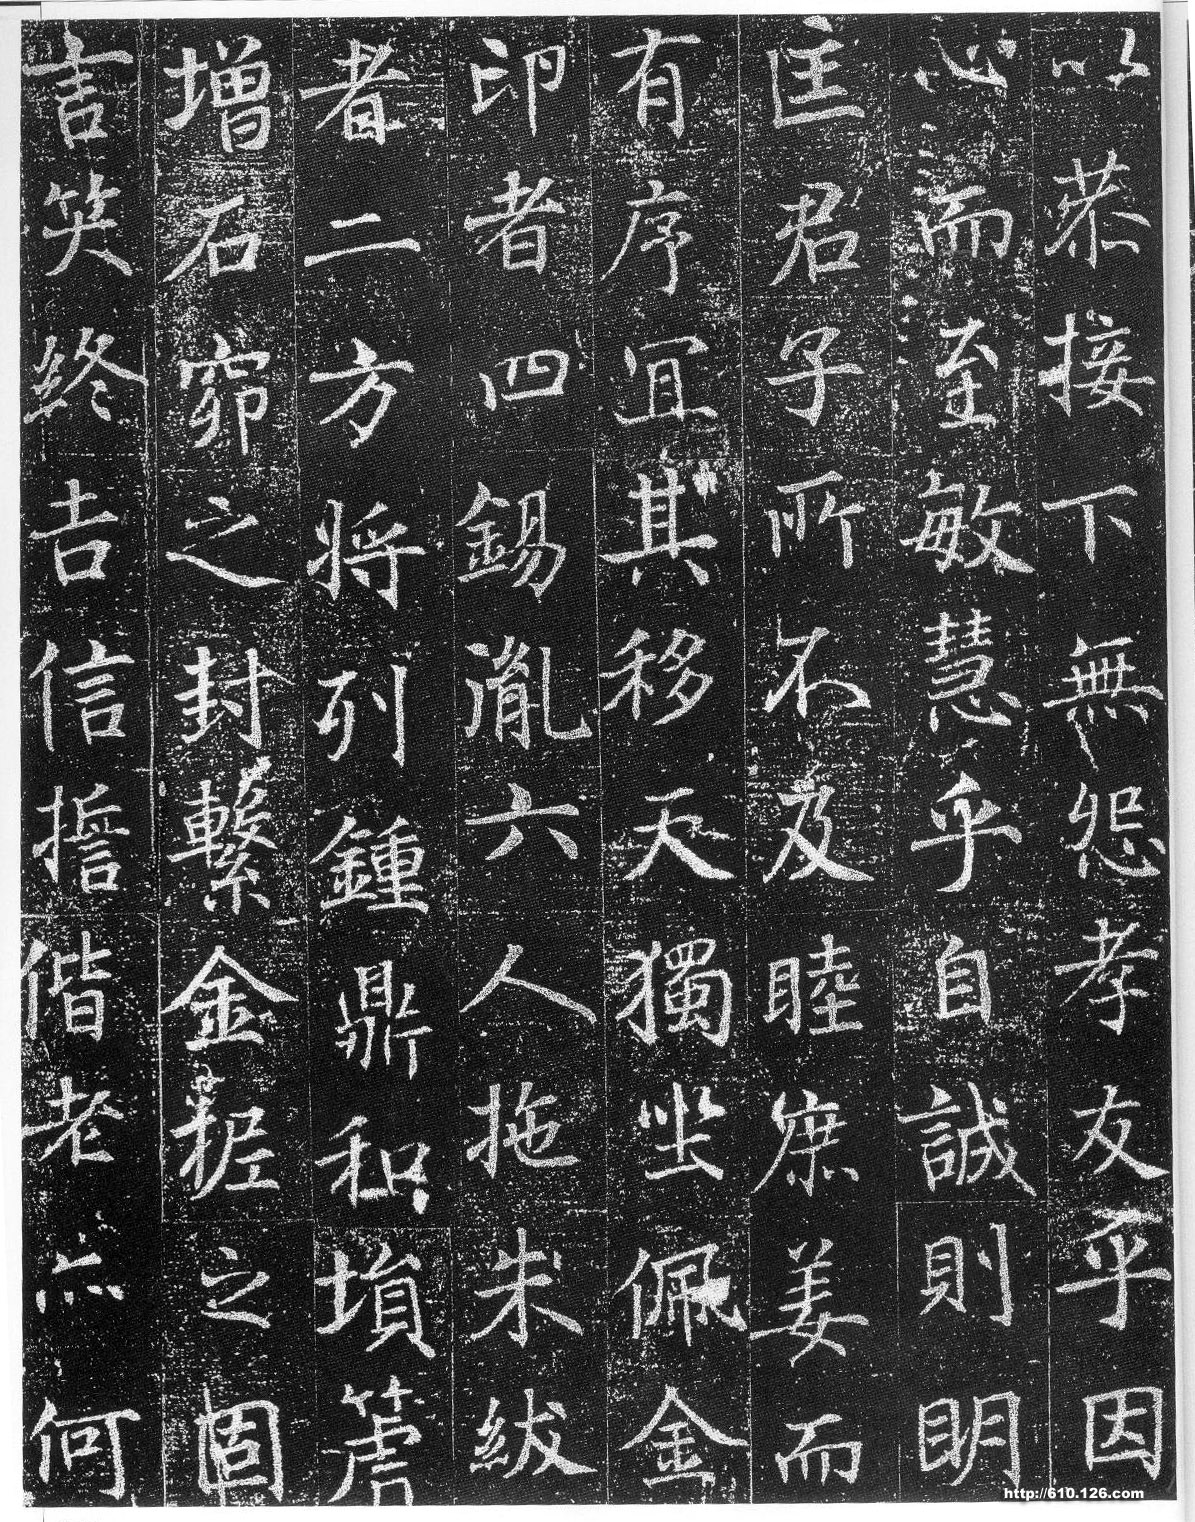 以恭接下無怨孝友乎因
心而至敏慧乎自誠則明
匡君子所不及睦庶姜而
有序宜其移天獨坐佩金
印者四錫胤六人拖朱紱
者二方將列鍾鼎和塤箎
增石窌之封繫金柅之固
言笑終吉信誓偕老亦何
http://610.126.com